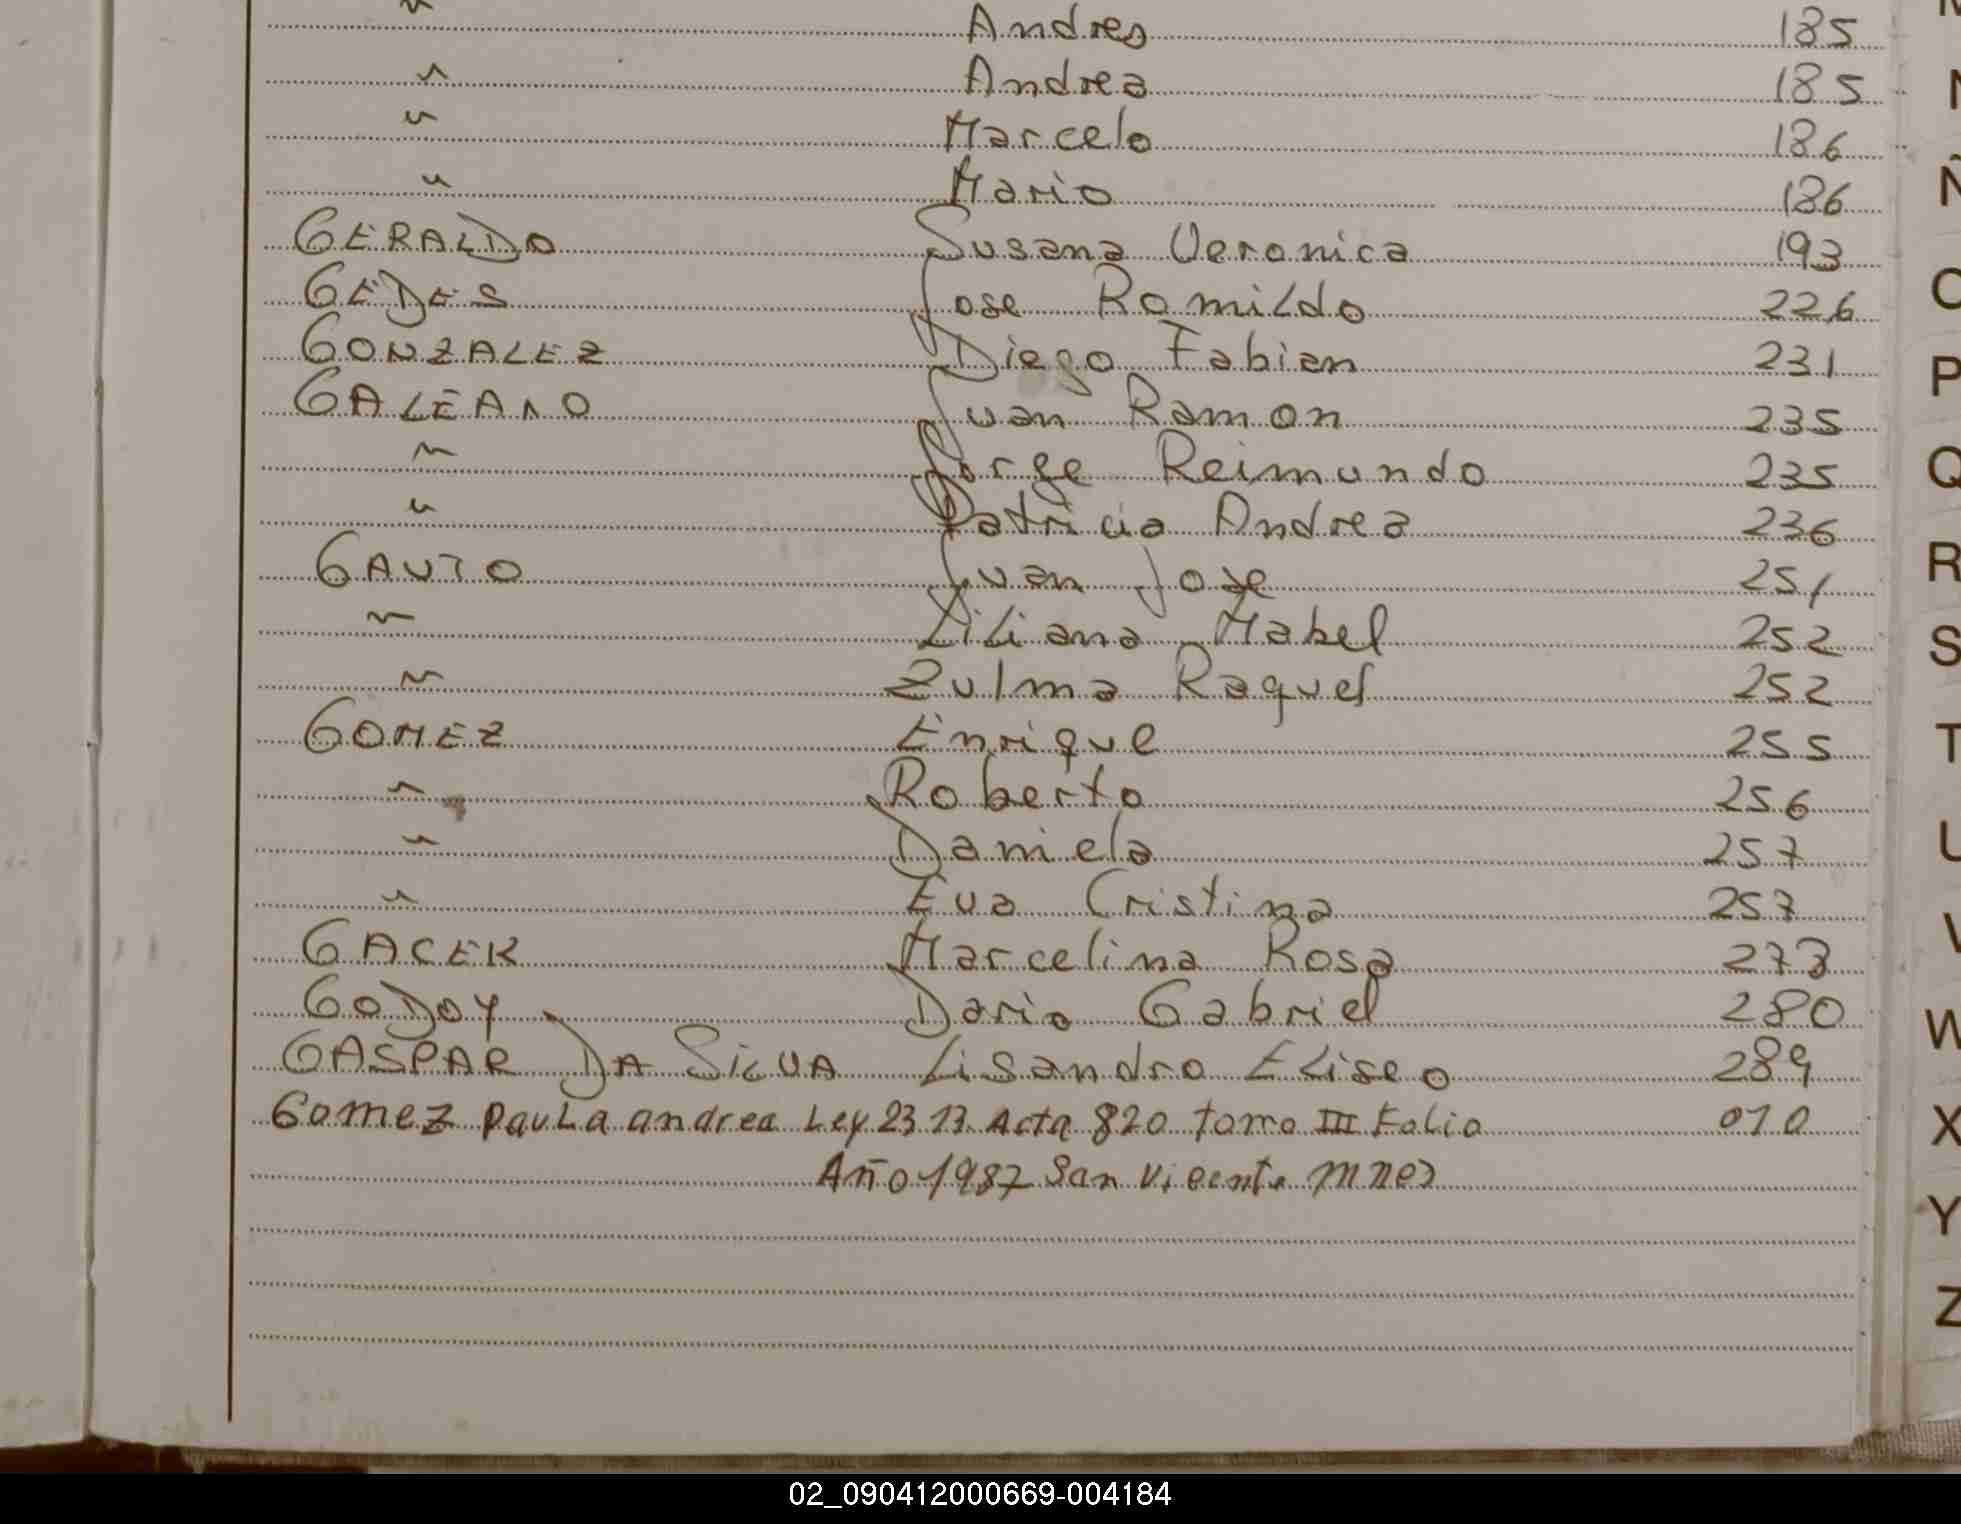 " Andres 185
" Andrea 185
" Marcelo 186
" Mario 186
GERALDO Susana Veronica 193
GEDES Jose Romildo 226
GONZALEZ Diego Fabian 231
GALEANO Juan Ramon 235
" Jorge Reimundo 235
" Patricia Andrea 236
GAUTO Juan Jose 251
" Liliana Mabel 252
" Zulma Raquel 252
GOMEZ Enrique 255
" Roberto 256
" Daniela 257
" Eva Cristina 257
GACEK Marcelina Rosa 273
GODOY Dario Gabriel 280
GASPAR DA SILVA Lisandro Eliseo 289
Gomez Paula andrea Ley 23 13 Acta 820 tomo III Folio 010
Año 1987 San Vicente Mnes
Ñ
O
P
Q
R
S
T
U
V
W
X
Y
Z
02_090412000669-004184